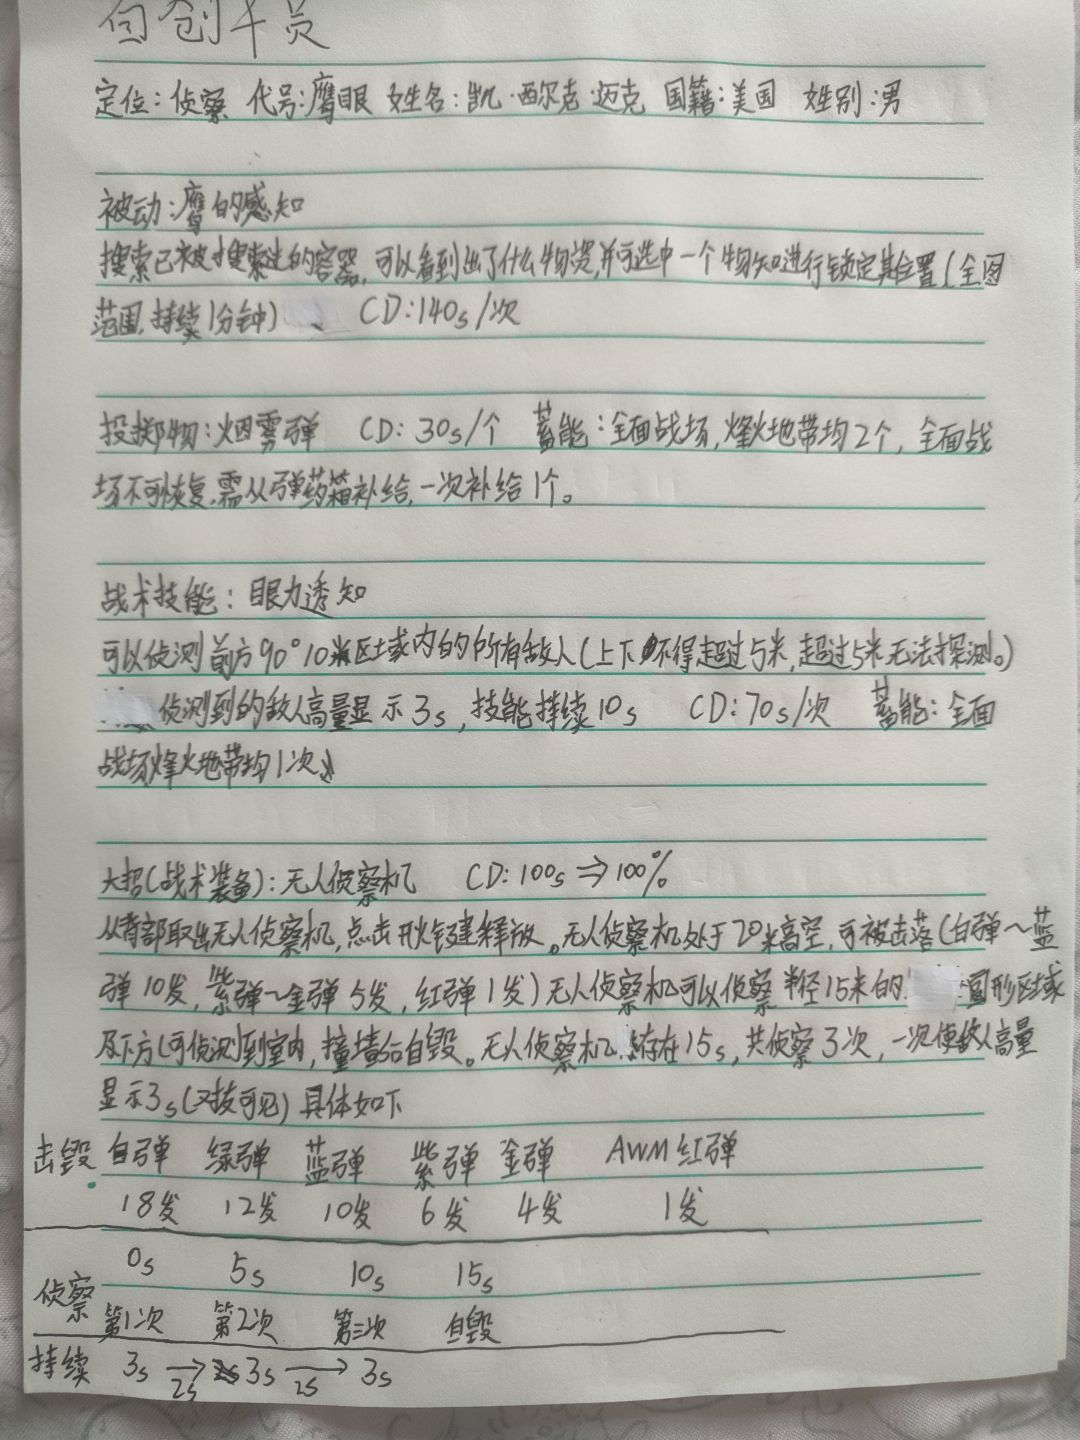 自创干员
定位：侦察 代号：鹰眼 姓名：凯·西尔克·迈克 国籍：美国 姓别：男
被动：鹰的感知
搜索已被搜索过的容器，可以看到出了什么物资，并可选中一个物知进行锁定其位置（全图
范围，持续1分钟） CD：140s/次
投掷物：烟雾弹 CD：30s/个 蓄能：全面战场，烽火地带均2个，全面战
场不可恢复，需从弹药箱补给，一次补给1个。
战术技能：眼力透知
可以侦测前方90°10米区域内的所有敌人（上下不得超过5米，超过5米无法探测。）
侦测到的敌人高量显示3s，技能持续10s CD：70s/次 蓄能：全面
战场烽火地带均1次
大招（战术装备）：无人侦察机 CD：100s⇒100%
从背部取出无人侦察机，点击开火键释放。无人侦察机处于20米高空，可被击落（白弹～蓝
弹10发，紫弹～金弹5发，红弹1发）无人侦察机可以侦察半径15米的圆形区域
及下方（可侦测到室内，撞墙后自毁。无人侦察机存在15s，共侦察3次，一次使敌人高量
显示3s（双技可见）具体如下
击毁 白弹 绿弹 蓝弹 紫弹 金弹 AWM红弹
18发 12发 10发 6发 4发 1发
0s 5s 10s 15s
侦察 第1次 第2次 第三次 自毁
持续 3s → 3s → 3s
2s 2s